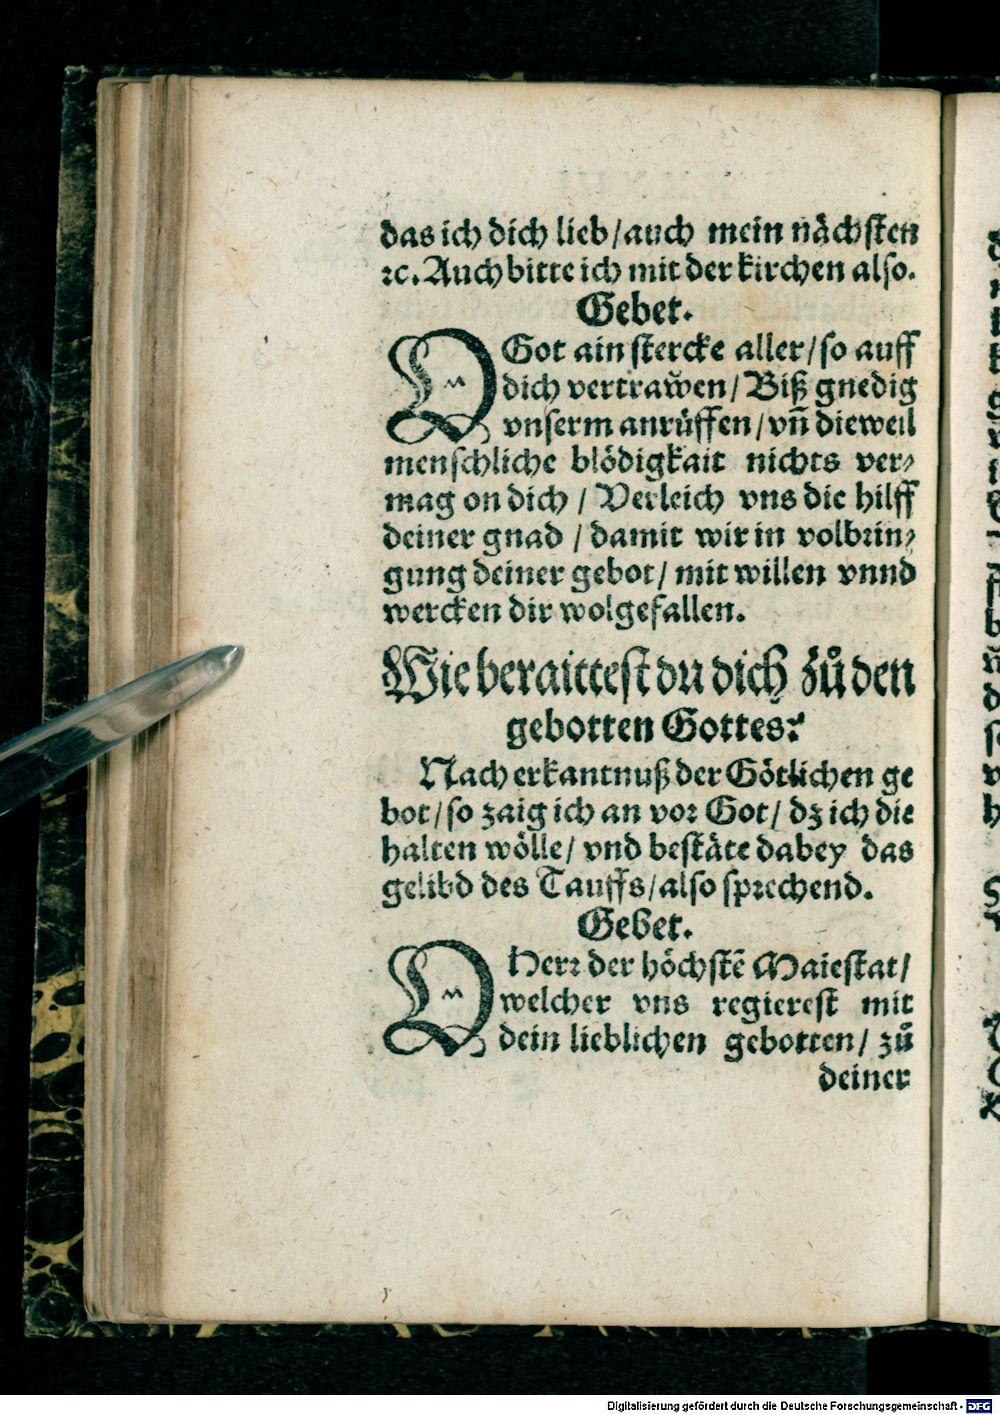 das ich dich lieb/auch mein nächsten
ꝛc. Auch bitte ich mit der kirchen also.
Gebet.
O Got ain stercke aller/so auff
dich vertrawen/Biß gnedig
vnserm anrüffen/vñ dieweil
menschliche blödigkait nichts ver⸗
mag on dich/Verleich vns die hilff
deiner gnad/damit wir in volbrin⸗
gung deiner gebot/mit willen vnnd
wercken dir wolgefallen.
Wie beraittest du dich zů den
gebotten Gottes?
Nach erkantnuß der Götlichen ge
bot/so zaig ich an vor Got/dz ich die
halten wölle/vnd bestäte dabey das
gelibd des Tauffs/also sprechend.
Gebet.
O Herr der höchstē Maiestat/
welcher vns regierest mit
dein lieblichen gebotten/zů
deiner
Digitalisierung gefördert durch die Deutsche Forschungsgemeinschaft - DFG